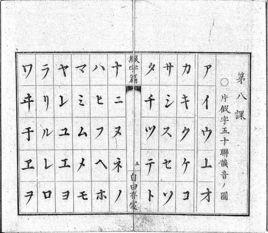 第八課
○片假字五十聯綴音ノ圖
アイウエオ
カキクケコ
サシスセソ
タチツテト
綴字篇
五
ナニヌネノ
ハヒフヘホ
マミムメモ
ヤイユエヨ
ラリルレロ
ワヰ于ヱヲ